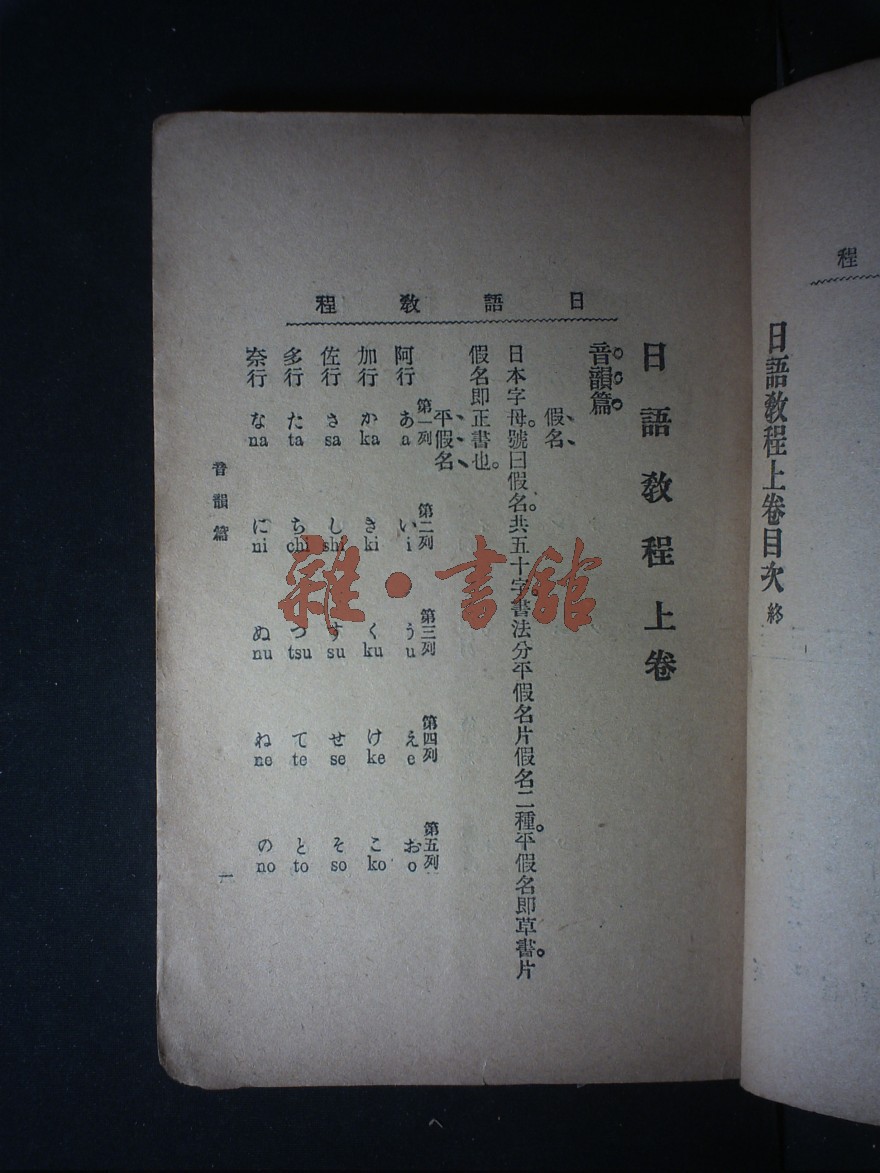 程
日語敎程上卷目次 終
日語敎程
日語敎程上卷
音韻篇
假名
日本字母。號曰假名。共五十字。書法分平假名片假名二種。平假名即草書。片
假名即正書也。
平假名
第一列 第二列 第三列 第四列 第五列
阿行 あ a い i う u え e お o
加行 か ka き ki く ku け ke こ ko
佐行 さ sa し shi す su せ se そ so
多行 た ta ち chi つ tsu て te と to
奈行 な na に ni ぬ nu ね ne の no
音韻篇
一
雜·書館